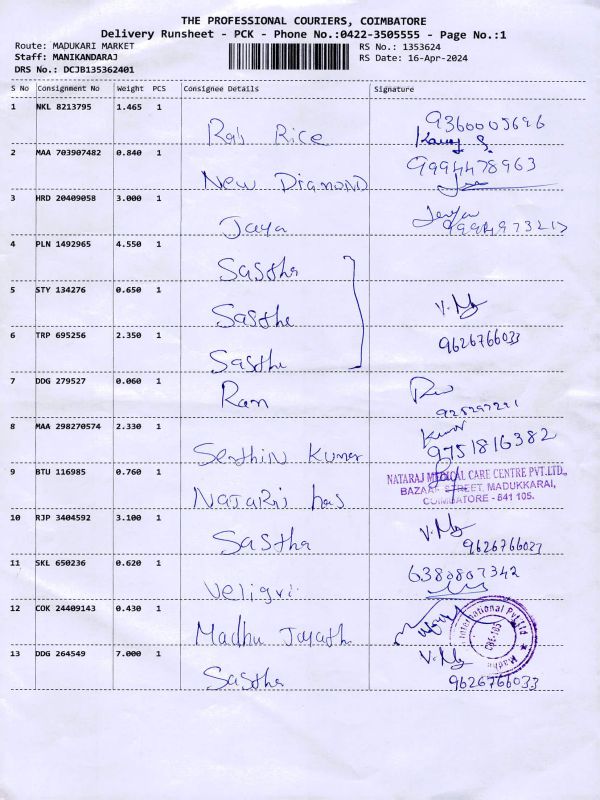 THE PROFESSIONAL COURIERS, COIMBATORE
Delivery Runsheet - PCK - Phone No.:0422-3505555 - Page No.:1
Route: MADUKARI MARKET
RS No.: 1353624
Staff: MANIKANDARAJ
RS Date: 16-Apr-2024
DRS No.: DCJB135362401
S No Consignment No Weight PCS Consignee Details Signature
1 NKL 8213795 1.465 1
Raj Rice 9360005696
2 MAA 703907482 0.840 1
New Diamond 9994478963
3 HRD 20409058 3.000 1
Jaya
4 PLN 1492965 4.550 1
Sastha
5 STY 134276 0.650 1
Sastha
6 TRP 695256 2.350 1
Sastha 9626766033
7 DDG 279527 0.060 1
Ram
8 MAA 298270574 2.330 1
Senthin Kumar 9751816382
9 BTU 116985 0.760 1
NATARAJ MEDICAL CARE CENTRE PVT.LTD.,
BAZAAR STREET, MADUKKARAI,
COIMBATORE - 641 105.
10 RJP 3404592 3.100 1
Sastha
11 SKL 650236 0.620 1
Veligiri 6380807342
12 COK 24409143 0.430 1
Madhu Jayath
International Pvt Ltd
CBE-105
13 DDG 264549 7.000 1
Sastha 9626766033